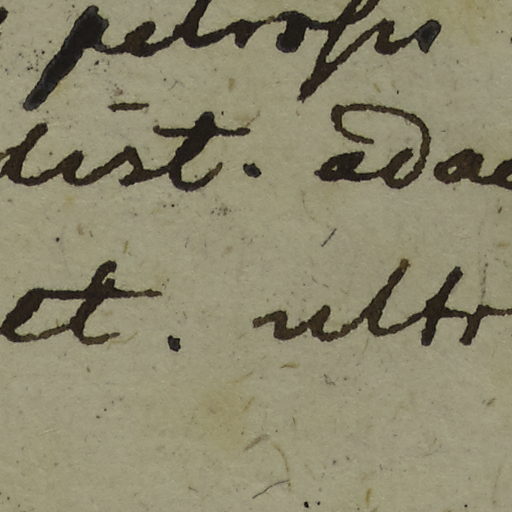 petrosis
dist. adae
et. ultr